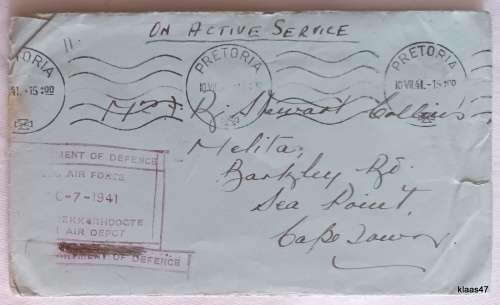 ON ACTIVE SERVICE
PRETORIA
PRETORIA
PRETORIA
41.-15 00
10.VII.41.-15 00
Mrs R. Stewart Collins
Melita,
Barkley Rd.
Sea Point,
Cape Town
MENT OF DEFENCE
AIR FORCE
-7-1941
HOOGTE
AIR DEPOT
MENT OF DEFENCE
klaas47